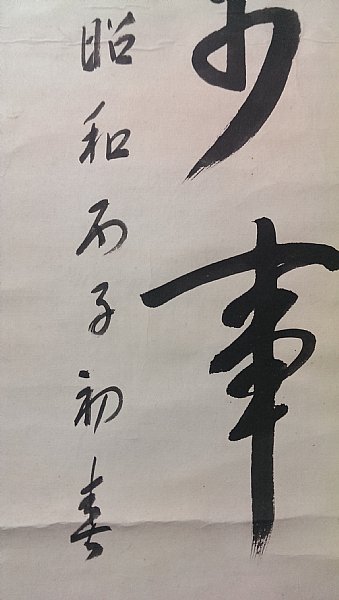 少事
昭和丙子初春